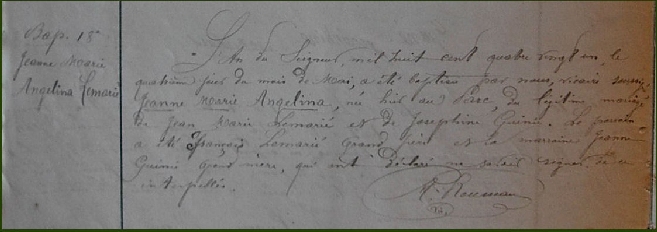 Bap. 18e
Jeanne Marie
Angelina Lemarié
L'an du Seigneur, mil huit cent quatre vingt un le
quatrième jour du mois de Mai, a été baptisée par nous, vicaire soussigné
Jeanne Marie Angelina, née hier au Porc, du légitime mariage
de Jean Marie Lemarié et de Joséphine Guinie. Le parrain
a été François Lemarié grand père et la marraine Jeanne
Guinie grand mère, qui ont déclaré ne savoir signer de ce
interpellés.